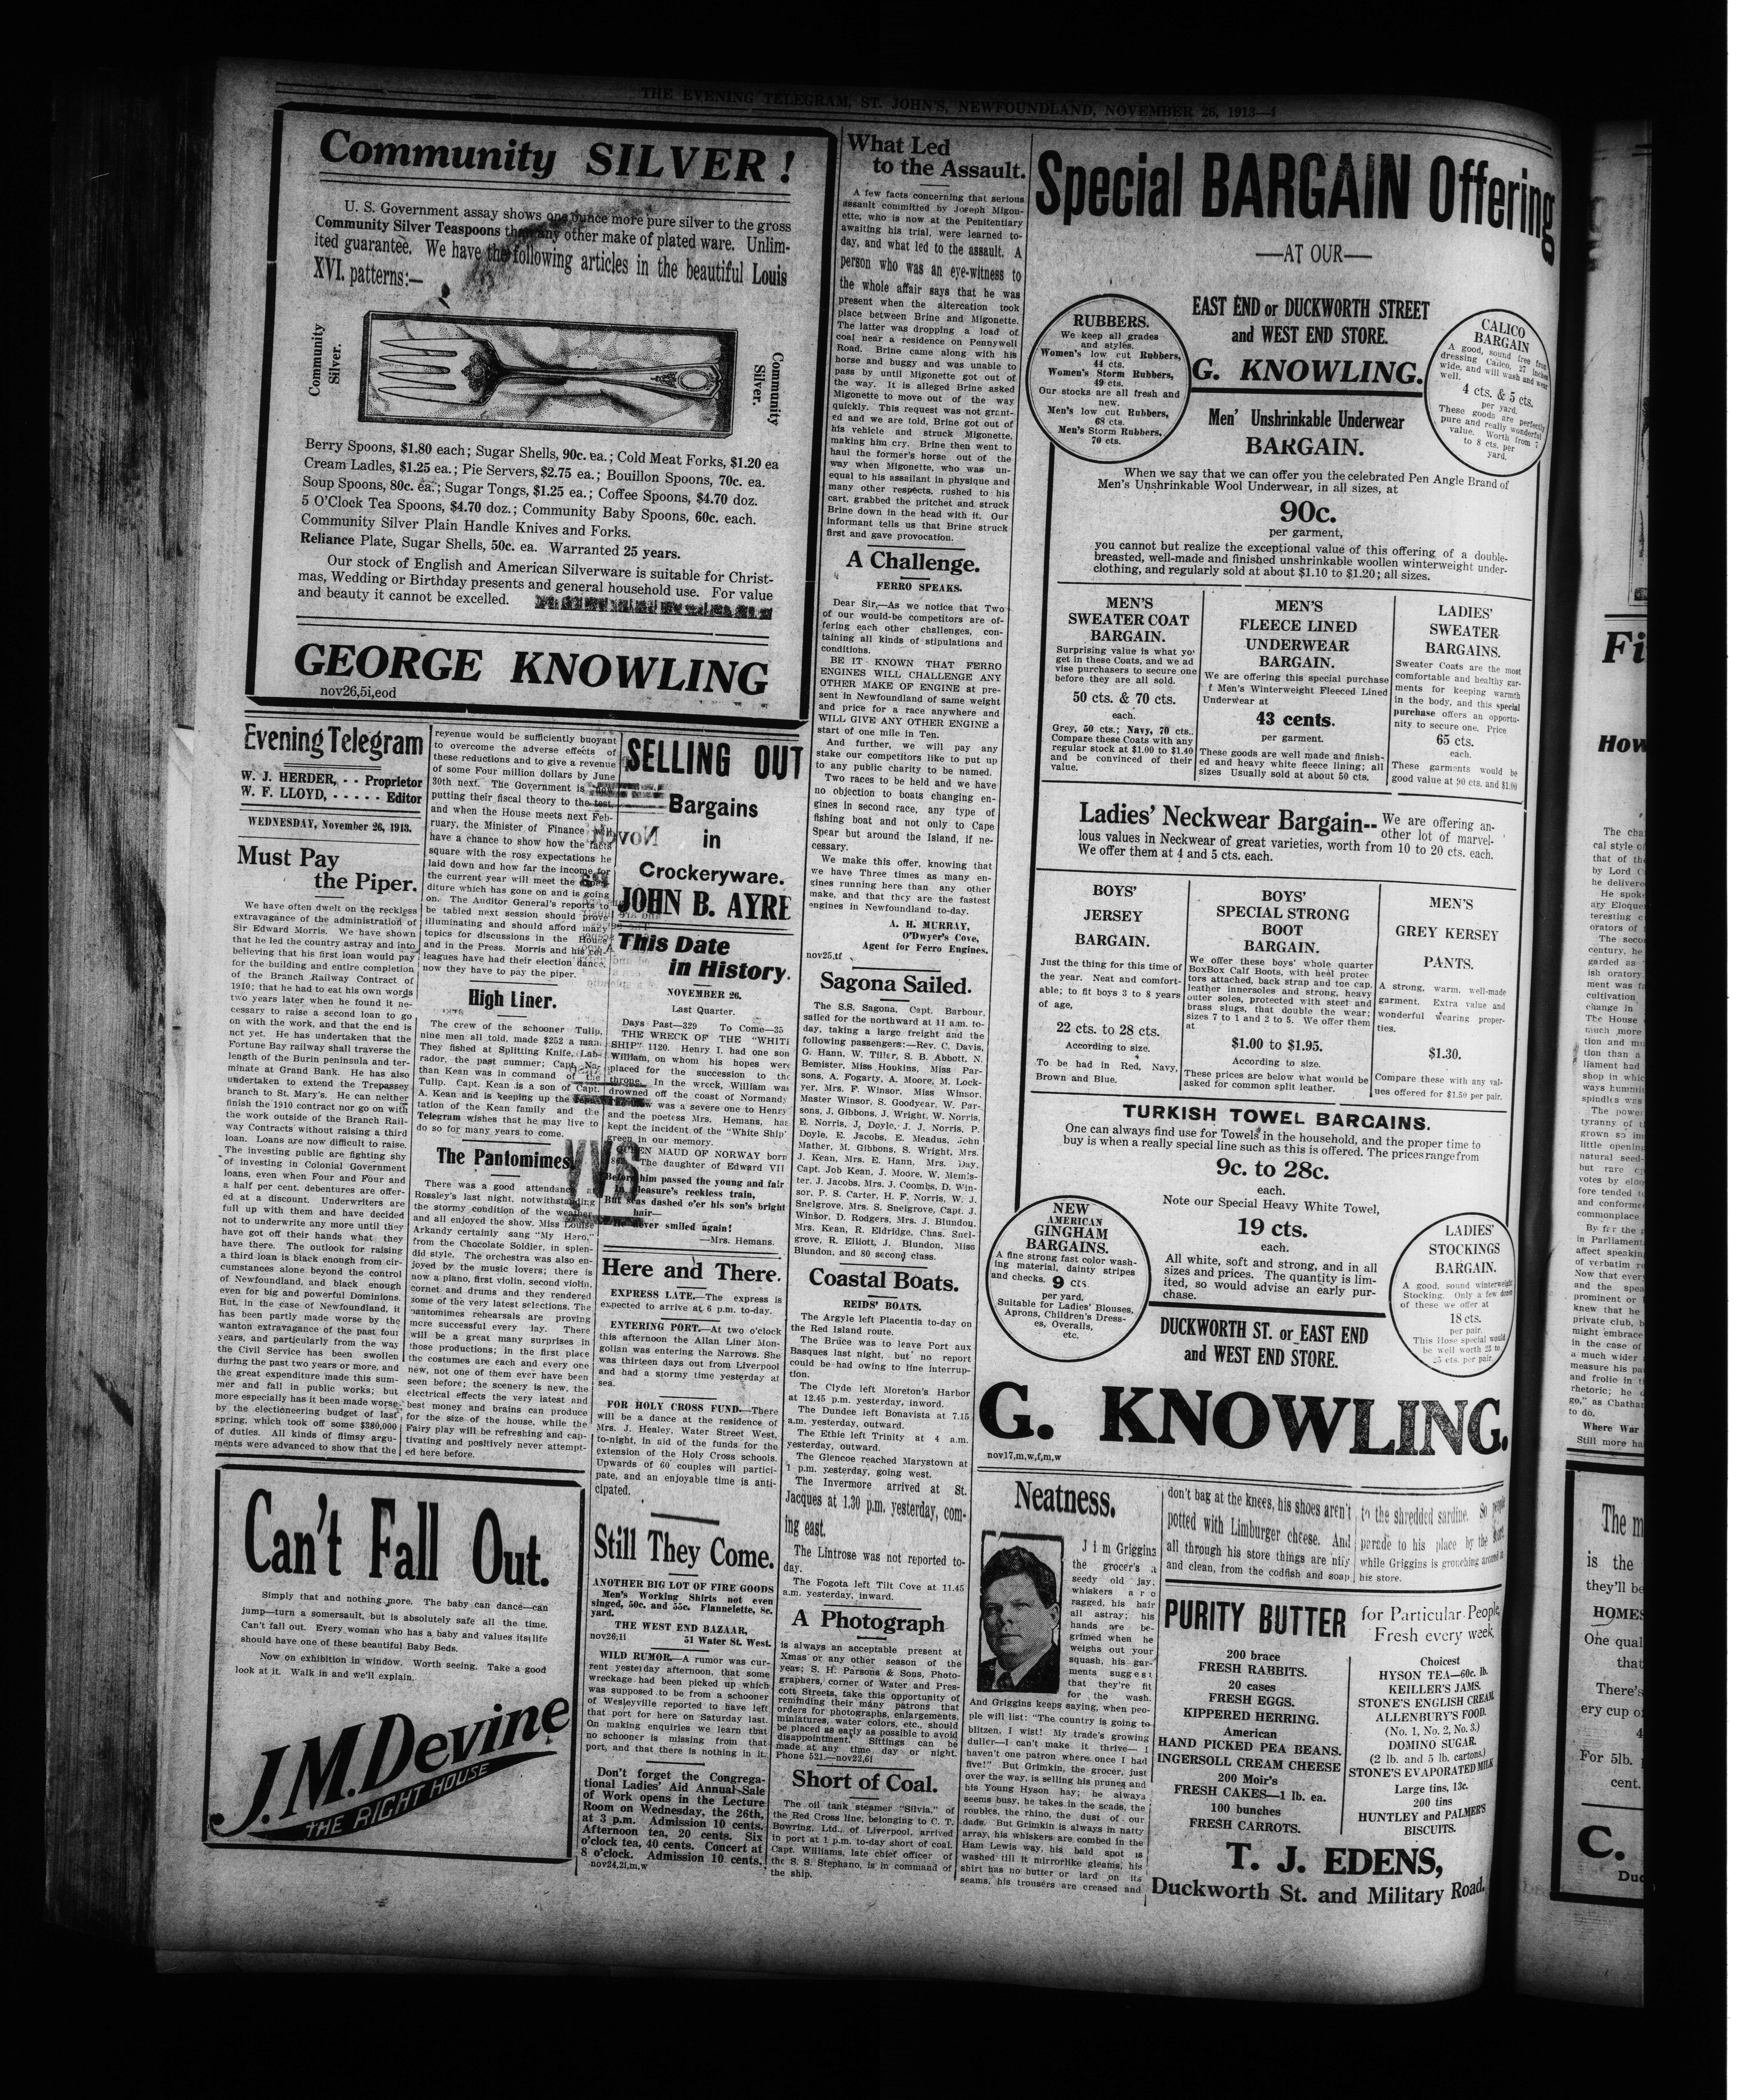 THE EVENING TELEGRAM, ST. JOHN'S, NEWFOUNDLAND, NOVEMBER 26, 1913—4
Community SILVER!
U. S. Government assay shows one ounce more pure silver to the gross
Community Silver Teaspoons than any other make of plated ware. Unlim-
ited guarantee. We have the following articles in the beautiful Louis
XVI. patterns:—
Community
Silver.
Community
Silver.
Berry Spoons, $1.80 each; Sugar Shells, 90c. ea.; Cold Meat Forks, $1.20 ea
Cream Ladles, $1.25 ea.; Pie Servers, $2.75 ea.; Bouillon Spoons, 70c. ea.
Soup Spoons, 80c. ea.; Sugar Tongs, $1.25 ea.; Coffee Spoons, $4.70 doz.
5 O'Clock Tea Spoons, $4.70 doz.; Community Baby Spoons, 60c. each.
Community Silver Plain Handle Knives and Forks.
Reliance Plate, Sugar Shells, 50c. ea. Warranted 25 years.
Our stock of English and American Silverware is suitable for Christ-
mas, Wedding or Birthday presents and general household use. For value
and beauty it cannot be excelled.
GEORGE KNOWLING
nov26,5i,eod
Evening Telegram
W. J. HERDER, - - Proprietor
W. F. LLOYD, - - - - - Editor
WEDNESDAY, November 26, 1913.
Must Pay
the Piper.
We have often dwelt on the reckless
extravagance of the administration of
Sir Edward Morris. We have shown
that he led the country astray and into
believing that his first loan would pay
for the building and entire completion
of the Branch Railway Contract of
1910; that he had to eat his own words
two years later when he found it ne-
cessary to raise a second loan to go
on with the work, and that the end is
not yet. He has undertaken that the
Fortune Bay railway shall traverse the
length of the Burin peninsula and ter-
minate at Grand Bank. He has also
undertaken to extend the Trepassey
branch to St. Mary's. He can neither
finish the 1910 contract nor go on with
the work outside of the Branch Rail-
way Contracts without raising a third
loan. Loans are now difficult to raise.
The investing public are fighting shy
of investing in Colonial Government
loans, even when Four and Four and
a half per cent. debentures are offer-
ed at a discount. Underwriters are
full up with them and have decided
not to underwrite any more until they
have got off their hands what they
have there. The outlook for raising
a third loan is black enough from cir-
cumstances alone beyond the control
of Newfoundland, and black enough
even for big and powerful Dominions.
But, in the case of Newfoundland, it
has been partly made worse by the
wanton extravagance of the past four
years, and particularly from the way
the Civil Service has been swollen
during the past two years or more, and
the great expenditure made this sum-
mer and fall in public works; but
more especially has it been made worse
by the electioneering budget of last
spring, which took off some $380,000
of duties. All kinds of flimsy argu-
ments were advanced to show that the
revenue would be sufficiently buoyant
to overcome the adverse effects of
these reductions and to give a revenue
of some Four million dollars by June
30th next. The Government is now
putting their fiscal theory to the test,
and when the House meets next Feb-
ruary, the Minister of Finance will
have a chance to show how the facts
square with the rosy expectations he
laid down and how far the income for
the current year will meet the expen-
diture which has gone on and is going
on. The Auditor General's reports to
be tabled next session should prove
illuminating and should afford many
topics for discussions in the House
and in the Press. Morris and his col-
leagues have had their election dance,
now they have to pay the piper.
High Liner.
The crew of the schooner Tulip,
nine men all told, made $252 a man.
They fished at Splitting Knife, Lab-
rador, the past summer; Capt. Na-
than Kean was in command of the
Tulip. Capt. Kean is a son of Capt.
A. Kean and is keeping up the repu-
tation of the Kean family and the
Telegram wishes that he may live to
do so for many years to come.
The Pantomimes
There was a good attendance at
Rossley's last night, notwithstanding
the stormy condition of the weather,
and all enjoyed the show. Miss Louise
Arkandy certainly sang "My Hero,"
from the Chocolate Soldier, in splen-
did style. The orchestra was also en-
joyed by the music lovers; there is
now a piano, first violin, second violin,
cornet and drums and they rendered
some of the very latest selections. The
pantomimes rehearsals are proving
more successful every day. There
will be a great many surprises in
those productions; in the first place
the costumes are each and every one
new, not one of them ever have been
seen before; the scenery is new, the
electrical effects the very latest and
best money and brains can produce
for the size of the house, while the
Fairy play will be refreshing and cap-
tivating and positively never attempt-
ed here before.
Can't Fall Out.
Simply that and nothing more. The baby can dance—can
jump—turn a somersault, but is absolutely safe all the time.
Can't fall out. Every woman who has a baby and values its life
should have one of these beautiful Baby Beds.
Now on exhibition in window. Worth seeing. Take a good
look at it. Walk in and we'll explain.
J. M. Devine
THE RIGHT HOUSE
SELLING OUT
Bargains
in
Crockeryware.
JOHN B. AYRE
This Date
in History.
NOVEMBER 26.
Last Quarter.
Days Past—329 To Come—35
THE WRECK OF THE "WHITE
SHIP" 1120. Henry I. had one son
William, on whom his hopes were
placed for the succession to the
throne. In the wreck, William was
drowned off the coast of Normandy
was a severe one to Henry
and the poetess Mrs. Hemans, has
kept the incident of the "White Ship"
green in our memory.
QUEEN MAUD OF NORWAY born
The daughter of Edward VII
Before him passed the young and fair
In pleasure's reckless train,
But seas dashed o'er his son's bright
hair—
He never smiled again!
—Mrs. Hemans.
Here and There.
EXPRESS LATE.—The express is
expected to arrive at 6 p.m. to-day.
ENTERING PORT.—At two o'clock
this afternoon the Allan Liner Mon-
golian was entering the Narrows. She
was thirteen days out from Liverpool
and had a stormy time yesterday at
sea.
FOR HOLY CROSS FUND.—There
will be a dance at the residence of
Mrs. J. Healey, Water Street West,
to-night, in aid of the funds for the
extension of the Holy Cross schools.
Upwards of 60 couples will partici-
pate, and an enjoyable time is anti-
cipated.
Still They Come.
ANOTHER BIG LOT OF FIRE GOODS
Men's Working Shirts not even
singed, 50c. and 55c. Flannelette, 8c.
yard.
THE WEST END BAZAAR,
nov26,1i 51 Water St. West.
WILD RUMOR.—A rumor was cur-
rent yesterday afternoon, that some
wreckage had been picked up which
was supposed to be from a schooner
of Wesleyville reported to have left
that port for here on Saturday last.
On making enquiries we learn that
no schooner is missing from that
port, and that there is nothing in it.
Don't forget the Congrega-
tional Ladies' Aid Annual Sale
of Work opens in the Lecture
Room on Wednesday, the 26th,
at 3 p.m. Admission 10 cents.
Afternoon tea, 20 cents. Six
o'clock tea, 40 cents. Concert at
8 o'clock. Admission 10 cents.
nov24,2i,m,w
What Led
to the Assault.
A few facts concerning that serious
assault committed by Joseph Migon-
ette, who is now at the Penitentiary
awaiting his trial, were learned to-
day, and what led to the assault. A
person who was an eye-witness to
the whole affair says that he was
present when the altercation took
place between Brine and Migonette.
The latter was dropping a load of
coal near a residence on Pennywell
Road. Brine came along with his
horse and buggy and was unable to
pass by until Migonette got out of
the way. It is alleged Brine asked
Migonette to move out of the way
quickly. This request was not grant-
ed and we are told, Brine got out of
his vehicle and struck Migonette,
making him cry. Brine then went to
haul the former's horse out of the
way when Migonette, who was un-
equal to his assailant in physique and
many other respects, rushed to his
cart, grabbed the pritchet and struck
Brine down in the head with it. Our
informant tells us that Brine struck
first and gave provocation.
A Challenge.
FERRO SPEAKS.
Dear Sir,—As we notice that Two
of our would-be competitors are of-
fering each other challenges, con-
taining all kinds of stipulations and
conditions.
BE IT KNOWN THAT FERRO
ENGINES WILL CHALLENGE ANY
OTHER MAKE OF ENGINE at pre-
sent in Newfoundland of same weight
and price for a race anywhere and
WILL GIVE ANY OTHER ENGINE a
start of one mile in Ten.
And further, we will pay any
stake our competitors like to put up
to any public charity to be named.
Two races to be held and we have
no objection to boats changing en-
gines in second race, any type of
fishing boat and not only to Cape
Spear but around the Island, if ne-
cessary.
We make this offer, knowing that
we have Three times as many en-
gines running here than any other
make, and that they are the fastest
engines in Newfoundland to-day.
A. H. MURRAY,
O'Dwyer's Cove,
Agent for Ferro Engines.
nov25,tf
Sagona Sailed.
The S.S. Sagona, Capt. Barbour,
sailed for the northward at 11 a.m. to-
day, taking a large freight and the
following passengers:—Rev. C. Davis,
G. Hann, W. Tiller, S. B. Abbott, N.
Bemister, Miss Houkins, Miss Par-
sons, A. Fogarty, A. Moore, M. Lock-
yer, Mrs. F. Winsor, Miss Winsor,
Master Winsor, S. Goodyear, W. Par-
sons, J. Gibbons, J. Wright, W. Norris,
E. Norris, J. Doyle, J. J. Norris, P.
Doyle, E. Jacobs, E. Meadus, John
Mather, M. Gibbons, S. Wright, Mrs.
J. Kean, Mrs. E. Hann, Mrs. Day,
Capt. Job Kean, J. Moore, W. Memis-
ter, J. Jacobs, Mrs. J. Coombs, D. Win-
sor, P. S. Carter, H. F. Norris, W. J.
Snelgrove, Mrs. S. Snelgrove, Capt. J.
Winsor, D. Rodgers, Mrs. J. Blundon,
Mrs. Kean, R. Eldridge, Chas. Snel-
grove, R. Elliott, J. Blundon, Miss
Blundon, and 80 second class.
Coastal Boats.
REIDS' BOATS.
The Argyle left Placentia to-day on
the Red Island route.
The Bruce was to leave Port aux
Basques last night, but no report
could be had owing to line interrup-
tion.
The Clyde left Moreton's Harbor
at 12.45 p.m. yesterday, inword.
The Dundee left Bonavista at 7.15
a.m. yesterday, outward.
The Ethie left Trinity at 4 a.m.
yesterday, outward.
The Glencoe reached Marystown at
1 p.m. yesterday, going west.
The Invermore arrived at St.
Jacques at 1.30 p.m. yesterday, com-
ing east.
The Lintrose was not reported to-
day.
The Fogota left Tilt Cove at 11.45
a.m. yesterday, inward.
A Photograph
is always an acceptable present at
Xmas or any other season of the
year; S. H. Parsons & Sons, Photo-
graphers, corner of Water and Pres-
cott Streets, take this opportunity of
reminding their many patrons that
orders for photographs, enlargements,
miniatures, water colors, etc., should
be placed as early as possible to avoid
disappointment. Sittings can be
made at any time day or night.
Phone 521.—nov22,6i
Short of Coal.
The oil tank steamer "Silvia," of
the Red Cross line, belonging to C. T.
Bowring, Ltd., of Liverpool, arrived
in port at 1 p.m. to-day short of coal.
Capt. Williams, late chief officer of
the S. S. Stephano, is in command of
the ship.
Special BARGAIN Offering
—AT OUR—
EAST END or DUCKWORTH STREET
and WEST END STORE.
G. KNOWLING.
RUBBERS.
We keep all grades
and styles.
Women's low cut Rubbers,
44 cts.
Women's Storm Rubbers,
49 cts.
Our stocks are all fresh and
new.
Men's low cut Rubbers,
68 cts.
Men's Storm Rubbers,
70 cts.
CALICO
BARGAIN
A good, sound free from
dressing Calico, 27 inches
wide, and will wash and wear
well.
4 cts. & 5 cts.
per yard.
These goods are perfectly
pure and really wonderful
value. Worth from 7
to 8 cts. per
yard.
Men' Unshrinkable Underwear
BARGAIN.
When we say that we can offer you the celebrated Pen Angle Brand of
Men's Unshrinkable Wool Underwear, in all sizes, at
90c.
per garment,
you cannot but realize the exceptional value of this offering of a double-
breasted, well-made and finished unshrinkable woollen winterweight under-
clothing, and regularly sold at about $1.10 to $1.20; all sizes.
MEN'S
SWEATER COAT
BARGAIN.
Surprising value is what yo'
get in these Coats, and we ad
vise purchasers to secure one
before they are all sold.
50 cts. & 70 cts.
each.
Grey, 50 cts.; Navy, 70 cts.
Compare these Coats with any
regular stock at $1.00 to $1.40
and be convinced of their
value.
MEN'S
FLEECE LINED
UNDERWEAR
BARGAIN.
We are offering this special purchase
f Men's Winterweight Fleeced Lined
Underwear at
43 cents.
per garment.
These goods are well made and finish-
ed and heavy white fleece lining; all
sizes Usually sold at about 50 cts.
LADIES'
SWEATER
BARGAINS.
Sweater Coats are the most
comfortable and healthy gar-
ments for keeping warmth
in the body, and this special
purchase offers an opportu-
nity to secure one. Price
65 cts.
each.
These garments would be
good value at 90 cts. and $1.00
Ladies' Neckwear Bargain-- We are offering an-
other lot of marvel-
lous values in Neckwear of great varieties, worth from 10 to 20 cts. each.
We offer them at 4 and 5 cts. each.
BOYS'
JERSEY
BARGAIN.
Just the thing for this time of
the year. Neat and comfort-
able; to fit boys 3 to 8 years
of age,
22 cts. to 28 cts.
According to size.
To be had in Red, Navy,
Brown and Blue.
BOYS'
SPECIAL STRONG
BOOT
BARGAIN.
We offer these boys' whole quarter
BoxBox Calf Boots, with heel protec
tors attached, back strap and toe cap,
leather innersoles and strong, heavy
outer soles, protected with steel and
brass slugs, that double the wear;
sizes 7 to 1 and 2 to 5. We offer them
at
$1.00 to $1.95.
According to size.
These prices are below what would be
asked for common split leather.
MEN'S
GREY KERSEY
PANTS.
A strong, warm, well-made
garment. Extra value and
wonderful wearing proper-
ties.
$1.30.
Compare these with any val-
ues offered for $1.50 per pair.
TURKISH TOWEL BARGAINS.
One can always find use for Towels in the household, and the proper time to
buy is when a really special line such as this is offered. The prices range from
9c. to 28c.
each.
Note our Special Heavy White Towel,
19 cts.
each.
All white, soft and strong, and in all
sizes and prices. The quantity is lim-
ited, so would advise an early pur-
chase.
NEW
AMERICAN
GINGHAM
BARGAINS.
A fine strong fast color wash-
ing material, dainty stripes
and checks, 9 cts.
per yard.
Suitable for Ladies' Blouses,
Aprons, Children's Dress-
es, Overalls,
etc.
LADIES'
STOCKINGS
BARGAIN.
A good, sound winterweight
Stocking. Only a few dozen
of these we offer at
18 cts.
per pair.
This Hose special would
be well worth 23 to
25 cts. per pair.
DUCKWORTH ST. or EAST END
and WEST END STORE.
G. KNOWLING.
nov17,m,w,f,m,w
Neatness.
Jim Griggins
the grocer's a
seedy old jay;
whiskers are
ragged, his hair
all astray; his
hands are be-
grimed when he
weighs out your
squash, his gar-
ments suggest
that they're fit
for the wash.
And Griggins keeps saying, when peo-
ple will list: "The country is going to
blitzen, I wist! My trade's growing
duller—I can't make it thrive— I
haven't one patron where once I had
five!" But Grimkin, the grocer, just
over the way, is selling his prunes and
his Young Hyson hay; he always
seems busy, he takes in the scads, the
roubles, the rhino, the dust of our
dads. But Grimkin is always in natty
array, his whiskers are combed in the
Ham Lewis way, his bald spot is
washed till it mirrorlike gleams, his
shirt has no butter or lard on its
seams, his trousers are creased and
don't bag at the knees, his shoes aren't
potted with Limburger cheese. And
all through his store things are nify
and clean, from the codfish and soap
to the shredded sardine. So people
parade to his place by the score,
while Griggins is grouching around in
his store.
PURITY BUTTER for Particular People,
Fresh every week,
200 brace
FRESH RABBITS.
20 cases
FRESH EGGS.
KIPPERED HERRING.
American
HAND PICKED PEA BEANS.
INGERSOLL CREAM CHEESE
200 Moir's
FRESH CAKES—1 lb. ea.
100 bunches
FRESH CARROTS.
Choicest
HYSON TEA—60c. lb.
KEILLER'S JAMS.
STONE'S ENGLISH CREAM.
ALLENBURY'S FOOD.
(No. 1, No. 2, No. 3.)
DOMINO SUGAR.
(2 lb. and 5 lb. cartons.)
STONE'S EVAPORATED MILK
Large tins, 13c.
200 tins
HUNTLEY and PALMER'S
BISCUITS.
T. J. EDENS,
Duckworth St. and Military Road.